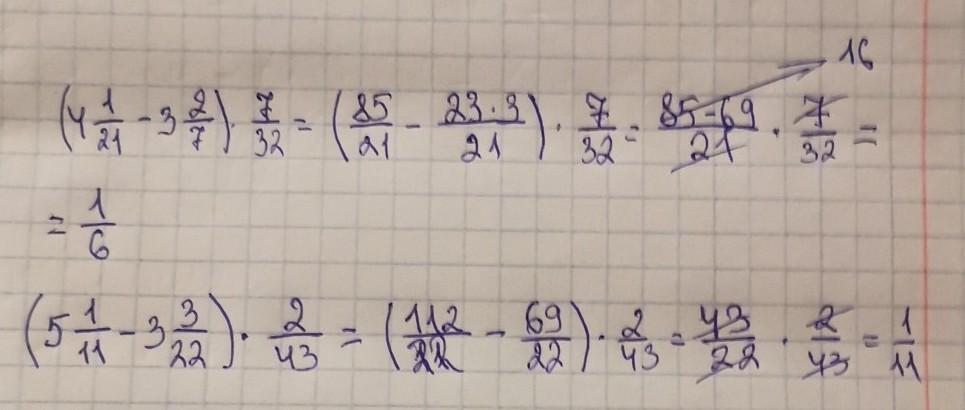 16
(4 1/21 - 3 2/7) · 7/32 = (85/21 - 23·3/21) · 7/32 = 85-69/21 · 7/32 =
= 1/6
(5 1/11 - 3 3/22) · 2/43 = (112/22 - 69/22) · 2/43 = 43/22 · 2/43 = 1/11